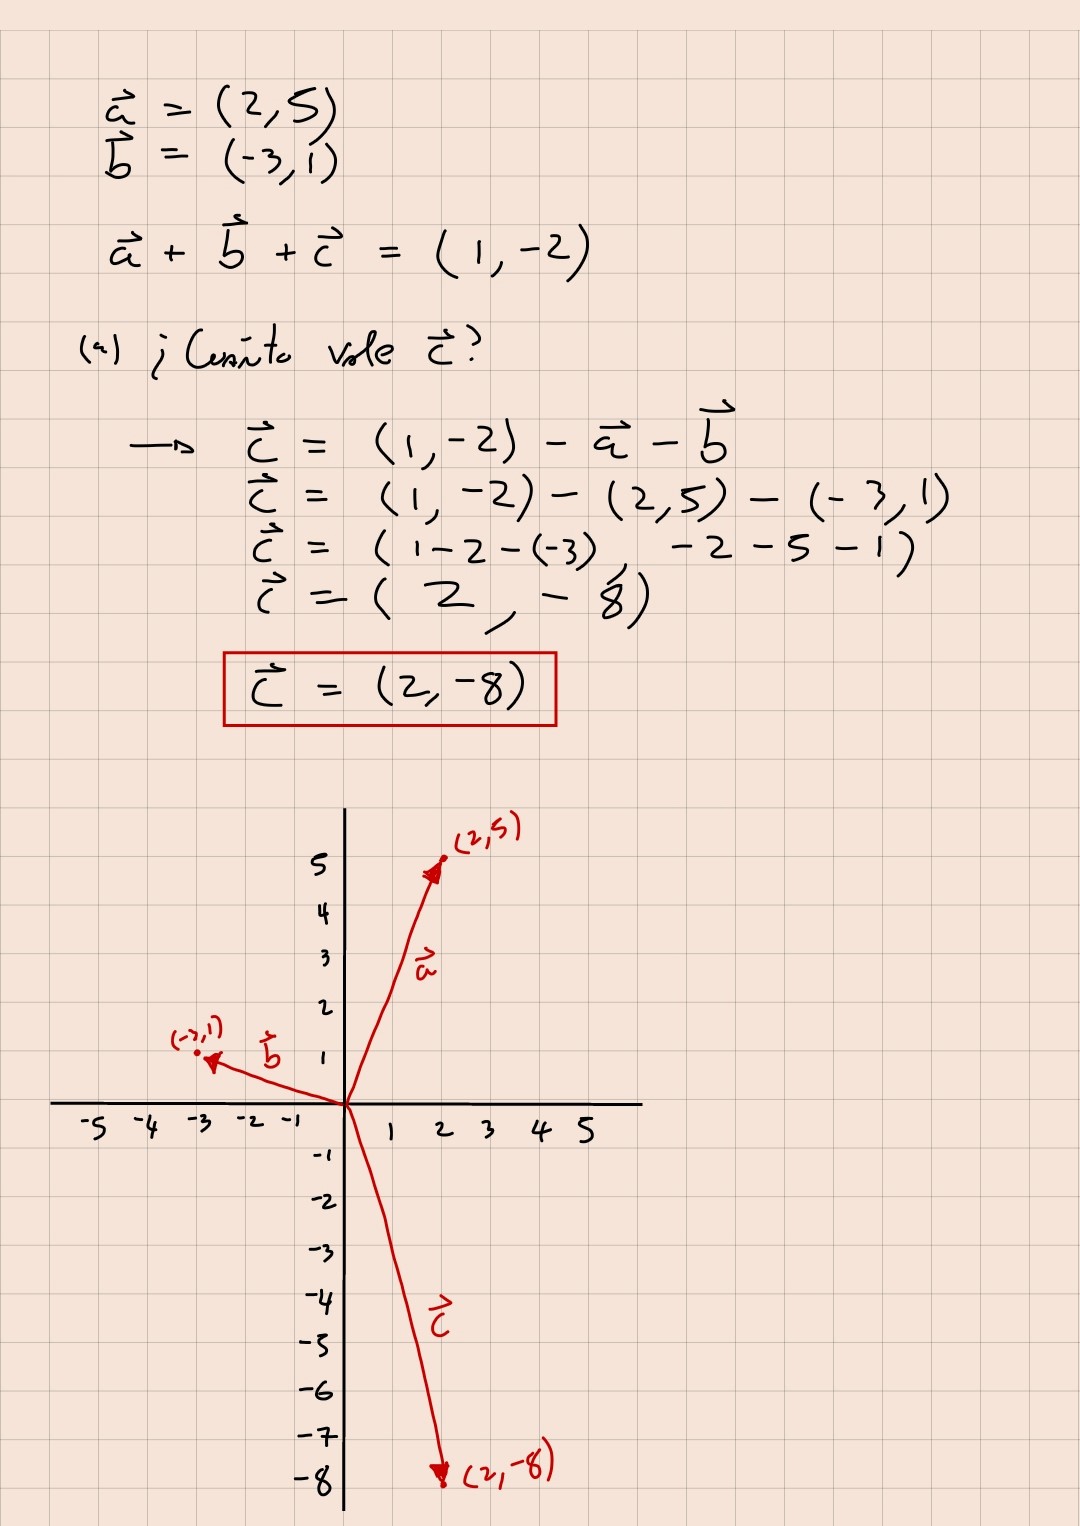 a⃗ = (2,5)
b⃗ = (-3,1)
a⃗ + b⃗ + c⃗ = (1,-2)
(a) ¡Cuánto vale c⃗?
→ c⃗ = (1,-2) - a⃗ - b⃗
c⃗ = (1,-2) - (2,5) - (-3,1)
c⃗ = (1-2-(-3), -2-5-1)
c⃗ = (2,-8)
c⃗ = (2,-8)
(2,5)
5
4
3
a⃗
2
(-3,1)
b⃗
1
-5 -4 -3 -2 -1 1 2 3 4 5
-1
-2
-3
-4
c⃗
-5
-6
-7
-8
(2,-8)